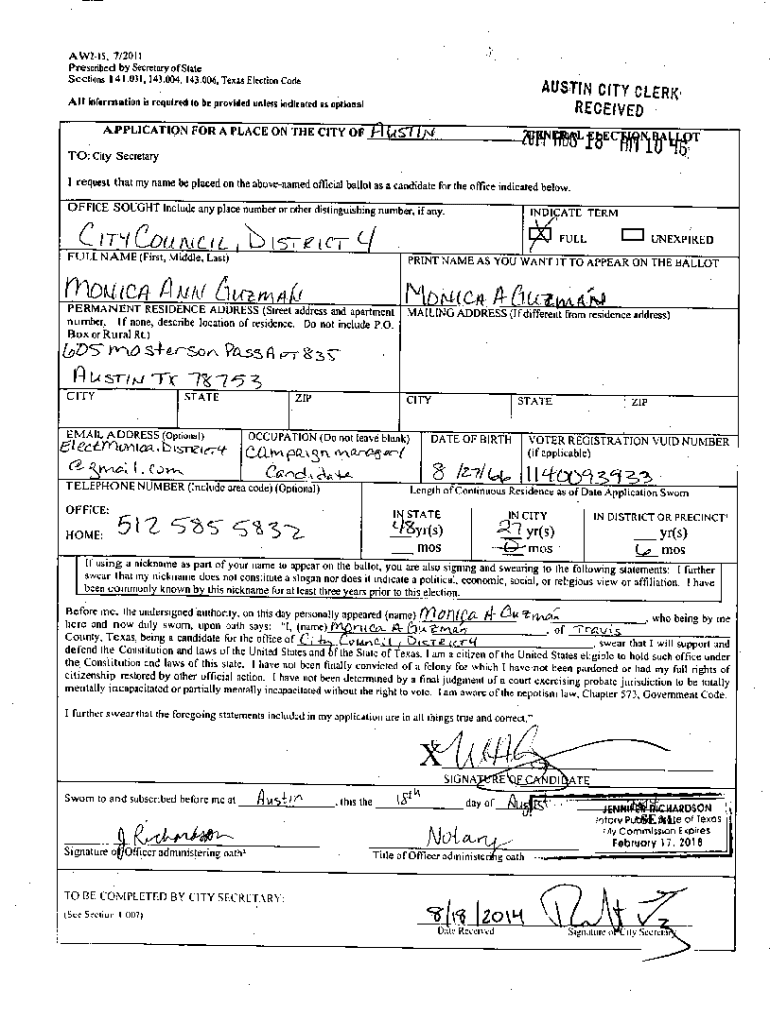 AW2-15, 7/2011
Prescribed by Secretary of State
Sections 141.031, 143.004, 143.006, Texas Election Code
All information is required to be provided unless indicated as optional
AUSTIN CITY CLERK
RECEIVED
2014 AUG 18 AM 10 46
APPLICATION FOR A PLACE ON THE CITY OF AUSTIN GENERAL ELECTION BALLOT
TO: City Secretary
I request that my name be placed on the above-named official ballot as a candidate for the office indicated below.
OFFICE SOUGHT Include any place number or other distinguishing number, if any.
CITY COUNCIL, DISTRICT 4
INDICATE TERM
X FULL UNEXPIRED
FULL NAME (First, Middle, Last)
MONICA ANN GUZMAN
PRINT NAME AS YOU WANT IT TO APPEAR ON THE BALLOT
MONICA A GUZMÁN
PERMANENT RESIDENCE ADDRESS (Street address and apartment
number. If none, describe location of residence. Do not include P.O.
Box or Rural Rt.)
605 masterson Pass APT 835
AUSTIN TX 78753
MAILING ADDRESS (If different from residence address)
CITY STATE ZIP
CITY STATE ZIP
EMAIL ADDRESS (Optional)
ElectMonica.District4
@gmail.com
OCCUPATION (Do not leave blank)
campaign manager/
Candidate
DATE OF BIRTH
8/27/66
VOTER REGISTRATION VUID NUMBER
(if applicable)
1140093933
TELEPHONE NUMBER (Include area code) (Optional)
OFFICE:
HOME: 512 585 5832
Length of Continuous Residence as of Date Application Sworn
IN STATE IN CITY IN DISTRICT OR PRECINCT¹
48 yr(s) 27 yr(s) yr(s)
mos 0 mos 6 mos
If using a nickname as part of your name to appear on the ballot, you are also signing and swearing to the following statements: I further
swear that my nickname does not constitute a slogan nor does it indicate a political, economic, social, or religious view or affiliation. I have
been commonly known by this nickname for at least three years prior to this election.
Before me, the undersigned authority, on this day personally appeared (name) Monica A Guzmán, who being by me
here and now duly sworn, upon oath says: "I, (name) Monica A Guzmán, of Travis
County, Texas, being a candidate for the office of City Council, District 4, swear that I will support and
defend the Constitution and laws of the United States and of the State of Texas. I am a citizen of the United States eligible to hold such office under
the Constitution and laws of this state. I have not been finally convicted of a felony for which I have not been pardoned or had my full rights of
citizenship restored by other official action. I have not been determined by a final judgment of a court exercising probate jurisdiction to be totally
mentally incapacitated or partially mentally incapacitated without the right to vote. I am aware of the nepotism law, Chapter 573, Government Code.
I further swear that the foregoing statements included in my application are in all things true and correct."
X
SIGNATURE OF CANDIDATE
Sworn to and subscribed before me at Austin, this the 18th day of August
JENNIFER RICHARDSON
Notary Public State of Texas
My Commission Expires
February 17, 2018
SEAL
J Richardson
Notary
Signature of Officer administering oath²
Title of Officer administering oath
TO BE COMPLETED BY CITY SECRETARY:
(See Section 1.007)
8/18/2014
Date Received
Signature of City Secretary